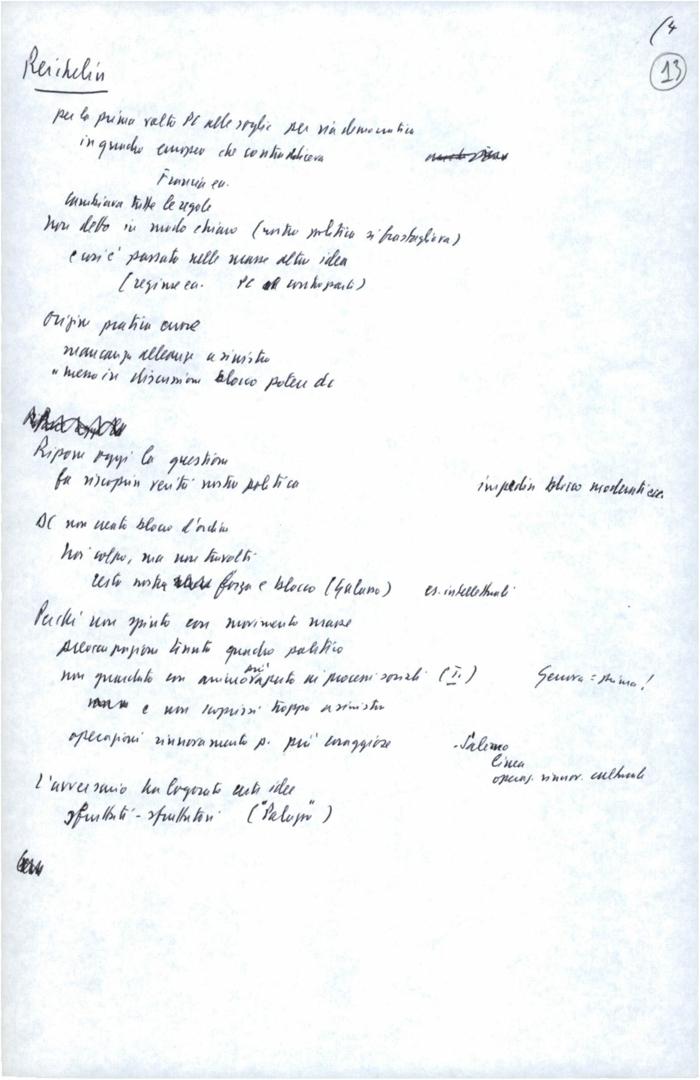 (4
13
Reichlin
per la prima volta PC alle soglie per via democratica
in quadro europeo che contraddiceva
Francia ecc.
cambiava tutte le regole
Non detto in modo chiaro (nostra politica si frastagliava)
e così è passata nelle masse altra idea
(regime ecc. PC controparti)
Origine pratica errore
mancanza alleanze a sinistra
" messa in discussione blocco potere dc
Ripone oggi la questione
fa riscoprire verità nostra politica
impedire blocco moderato ecc.
DC non creato blocco d'ordine
Noi colpo, ma non travolti
resta nostra forza e blocco (Galasso) es. intellettuali
Perché non spinto con movimento masse
preoccupazione tenuta quadro politico
non guardato con animo più aperto ai processi sociali (I.)
Genova = prima!
e non scoprirsi troppo a sinistra
operazioni rinnovamento p. più coraggiose
- Salerno
linea
operaz. rinnov. culturale
L'avversario ha logorato certe idee
sfruttati - sfruttatori ("Palazzo")